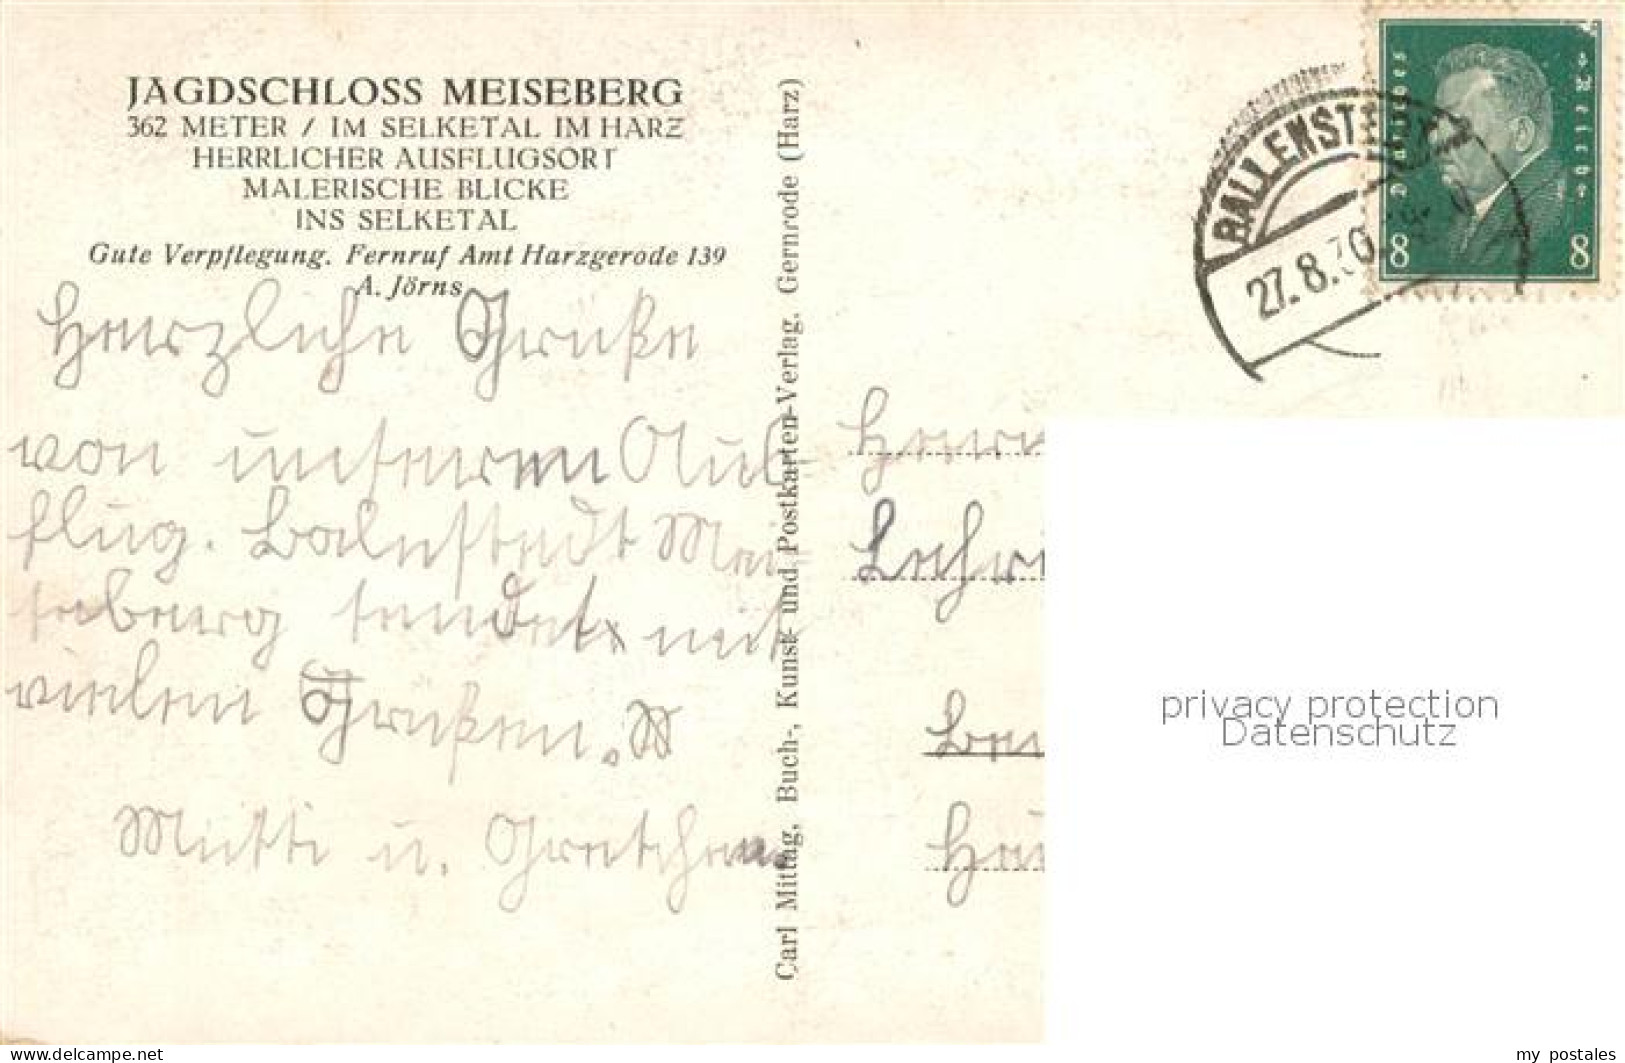 JAGDSCHLOSS MEISEBERG
362 METER / IM SELKETAL IM HARZ
HERRLICHER AUSFLUGSORT
MALERISCHE BLICKE
INS SELKETAL
Gute Verpflegung. Fernruf Amt Harzgerode 139
A. Jörns
Herzliche Grüße
von unseren Aus-
flug. Balenstedt Mei-
seberg sendet mit
vielen Grüßen.
Mutti u. Gretchen
Carl Mittag, Buch-, Kunst- und Postkarten-Verlag, Gernrode (Harz)
BALLENSTEDT
27.8.30
Deutsches Reich
8 8
Herrn
Lehr
privacy protection
Datenschutz
my postales